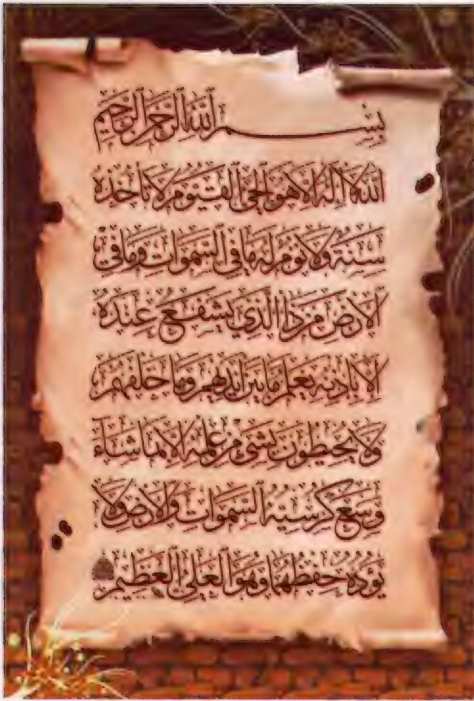 بِسْمِ ٱللَّهِ ٱلرَّحْمَٰنِ ٱلرَّحِيمِ
ٱللَّهُ لَا إِلَٰهَ إِلَّا هُوَ ٱلْحَىُّ ٱلْقَيُّومُ لَا تَأْخُذُهُ
سِنَةٌ وَلَا نَوْمٌ لَهُ مَا فِي ٱلسَّمَٰوَاتِ وَمَا فِي
ٱلْأَرْضِ مَنْ ذَا ٱلَّذِي يَشْفَعُ عِنْدَهُ
إِلَّا بِإِذْنِهِ يَعْلَمُ مَا بَيْنَ أَيْدِيهِمْ وَمَا خَلْفَهُمْ
وَلَا يُحِيطُونَ بِشَيْءٍ مِنْ عِلْمِهِ إِلَّا بِمَا شَاءَ
وَسِعَ كُرْسِيُّهُ ٱلسَّمَٰوَاتِ وَٱلْأَرْضَ وَلَا
يَؤُودُهُ حِفْظُهُمَا وَهُوَ ٱلْعَلِيُّ ٱلْعَظِيمُ